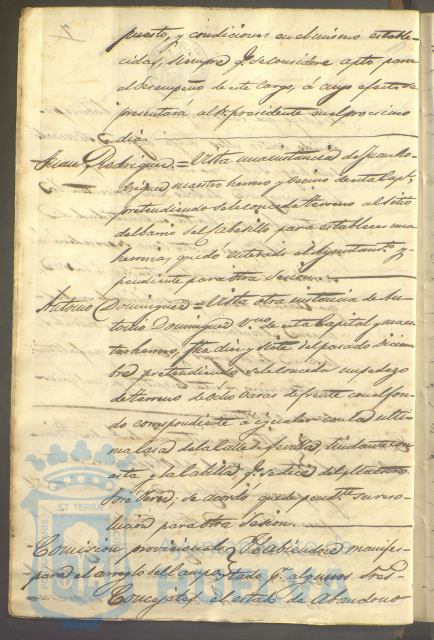 puesto, y condiciones en el mismo estable-
cidas, siempre q.e se considere apto para
el desempeño de este cargo, á cuyo efecto se
presentará al Sr. presidente en el procsimo
dia.
Juan Rodriguez = Vista una instancia de Juan Ro-
driguez maestro herrero y vecino de esta Cap.l,
pretendiendo se le conceda terreno al sitio
del barrio del para establecer una
herreria, quedó enterado el Ayuntam.to y
pendiente para otra Sesion.
Antonio Dominguez = Vista otra instancia de An-
tonio Dominguez v.no de esta Capital y maes-
tro herrero, fha diez y siete del pasado Diciem-
bre pretendiendo se le conceda un pedazo
de terreno de ocho varas de frente con el fon-
do correspondiente á igualar con la ulti-
ma casa de la Calle de Sevilla, lindante con
esta y la Casilla, q.e se dice del Maestro
José Perez, se acordó, quede pend.te su reso-
lucion para otra Sesion.
Comision provisional Habiendose manifes-
para el arreglo del Campo. tado p.r algunos Sres
Concejales el estado de abandono
ET TERRA
Ayuntamiento de
HUELVA